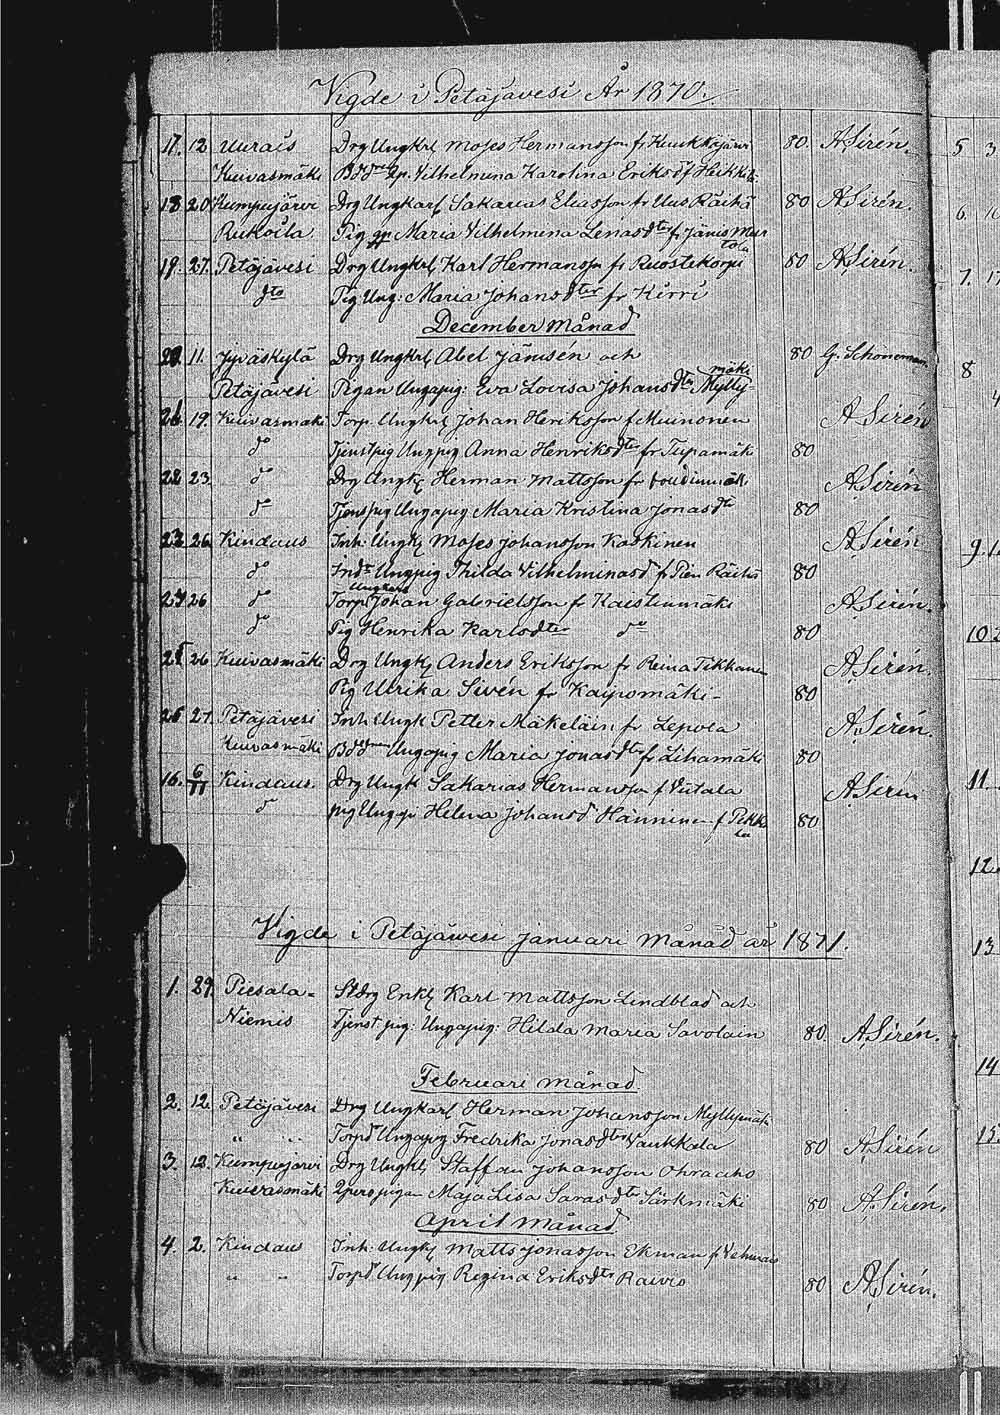 Vigde i Petäjävesi År 1870.
17. 12 Uurais Drg Ungkrl Moses Hermansson fr Kuukkajärvi 80. A Sirén.
Kuivasmäki Bdd Vilhelmina Karolina Eriksd f Heikkilä
18 20 Kumpujärvi Drg Ungkarl Sakarias Eliasson fr Uus Räihä 80 A Sirén.
Rukoila Pig Maria Vilhelmina Lenas dter f Jänis Mur
tola
19. 27. Petäjävesi Drg Ungkrl Karl Hermansson fr Ruostekorpi 80 A Sirén.
dto Pig Ung: Maria Johans dter fr Kirri
December Månad
20. 11. Jyväskylä Drg Ungkrl Abel Jämsén och 80 G. Schöneman
Petäjävesi Pigan Ungpig: Eva Lovisa Johans dter Mylly-
mäki
21. 19. Kuivasmäki Torp. Ungkrl Johan Henriksson f Muinonen A Sirén
do Tjenstpig Ungpig Anna Henriks dter fr Tupamäki 80
22 23 do Drg Ungkl Herman Mattsson fr A Sirén
do Tjenstpig Ungpig Maria Kristina Jonas dtr 80
23 26 Kindaus Inh: Ungkl Moses Johansson Kaskinen A Sirén
do Indr Ungpig Thilda Vilhelminasd fr Pien Räihä 80
24 26 do Torpd Ungkarl Johan Gabrielsson fr Raistinmäki A Sirén.
do Pig Henrika Karlsdter do 80
25 26 Kuivasmäki Drg Ungkl Anders Eriksson fr Reina Tikkanen A Sirén.
Pig Ulrika Sivén fr Kaipomäki- 80
26 27. Petäjävesi Inh Ungk Petter Mäkeläin fr Lepola A. Sirén.
Kuivasmäki Bdd Ungpig Maria Jonas dter fr Lihamäki 80
16. 6/11 Kindaus. Drg Ungk Sakarias Hermansson f Viitala A Sirén
d pig Ungpi Helena Johansd Hänninen f Pekka 80
la
Vigde i Petäjäwesi Januari Månad år 1871.
1. 29. Piesala- Stdrg Enkl Karl Mattsson Lindblad och
Niemis Tjenst pig: Ungpig: Hilda Maria Savolain 80. A Sirén.
Februari Månad.
2. 12. Petäjävesi Drg Ungkarl Herman Johansson Myllymäki
" " Torpd Ungpig Fredrika Jonas dter Vankkala 80 A Sirén
3. 12. Kumpujärvi Drg Ungkl Staffan Johansson Ohraaho
Kuivasmäki pigan Maja Lisa Saras dter Särkmäki 80 A. Sirén.
April Månad
4. 2. Kindaus Inh: Ungkl Matts Jonasson Ekman fr Vehmais
" " Torpd Ungpig Regina Eriks dter Raivio 80 A Sirén.
5 3
6. 10
7. 17
8
4
9. 1
10 2
11.
12.
13
14
15.